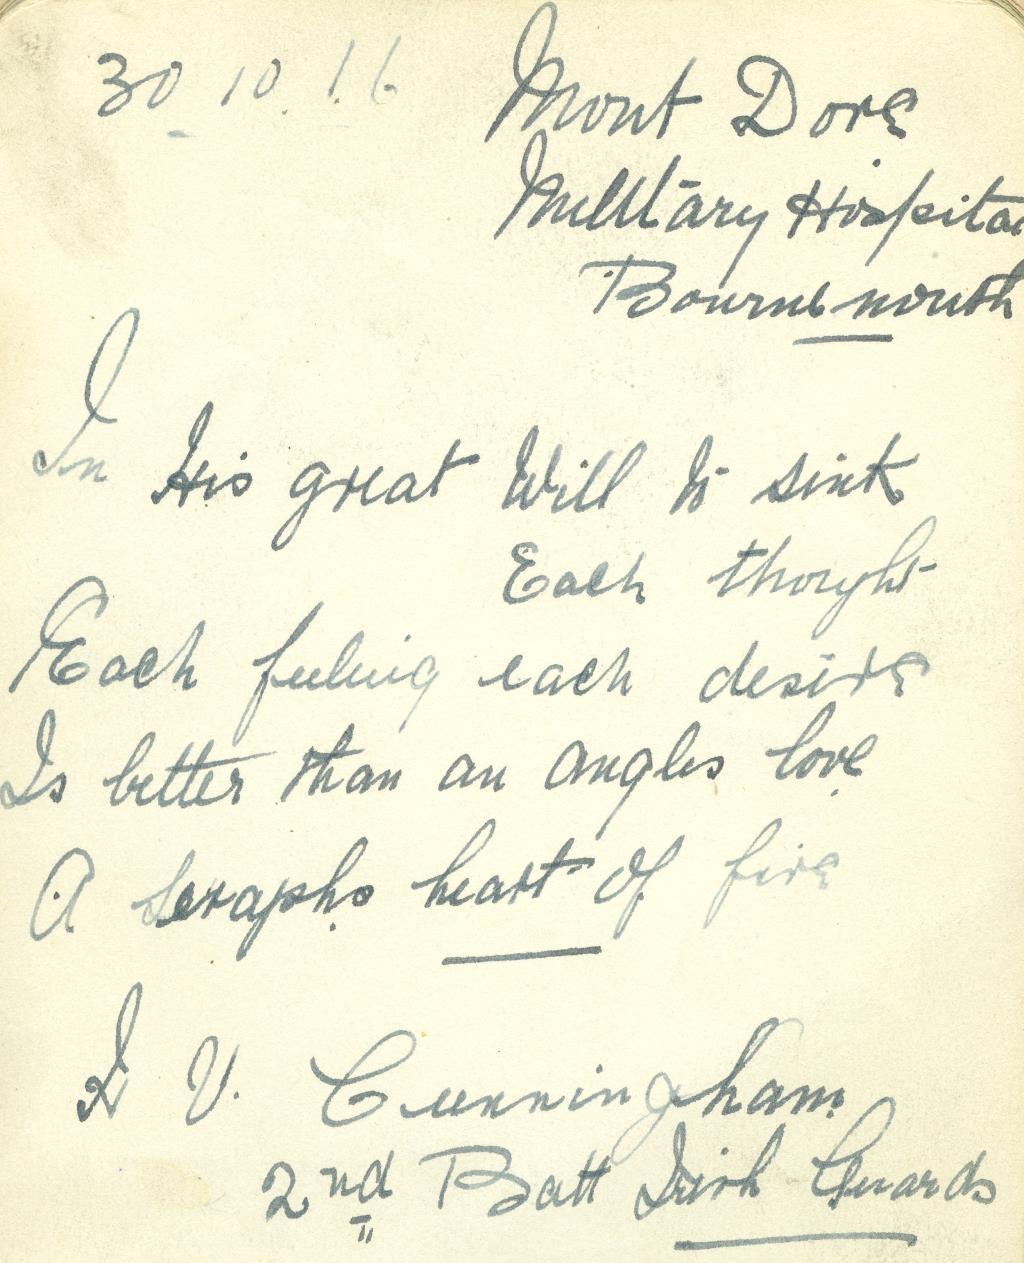 30 10 16
Mont Dore
Military Hospital
Bournemouth
In His great Will to sink
Each thought
Each feeling each desire
Is better than an angles love
A Seraphs heart of fire
V. Cunningham
2nd Batt Irish Guards